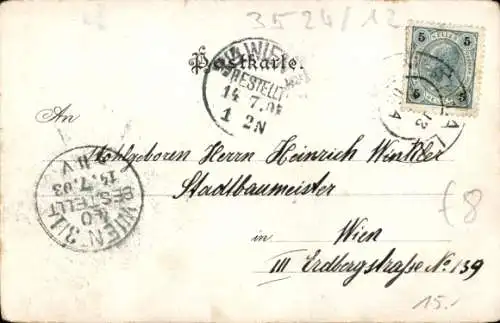 3524/12
Postkarte.
WIEN
BESTELLT
14.7.03
1 2N
5 5
5 5
An
Wohlgeboren Herrn Heinrich Winkler
Stadtbaumeister
in Wien
III Erdbergstraße No 139
WIEN 3/1
40
BESTELLT
14.7.03
8 V
€8
15.-